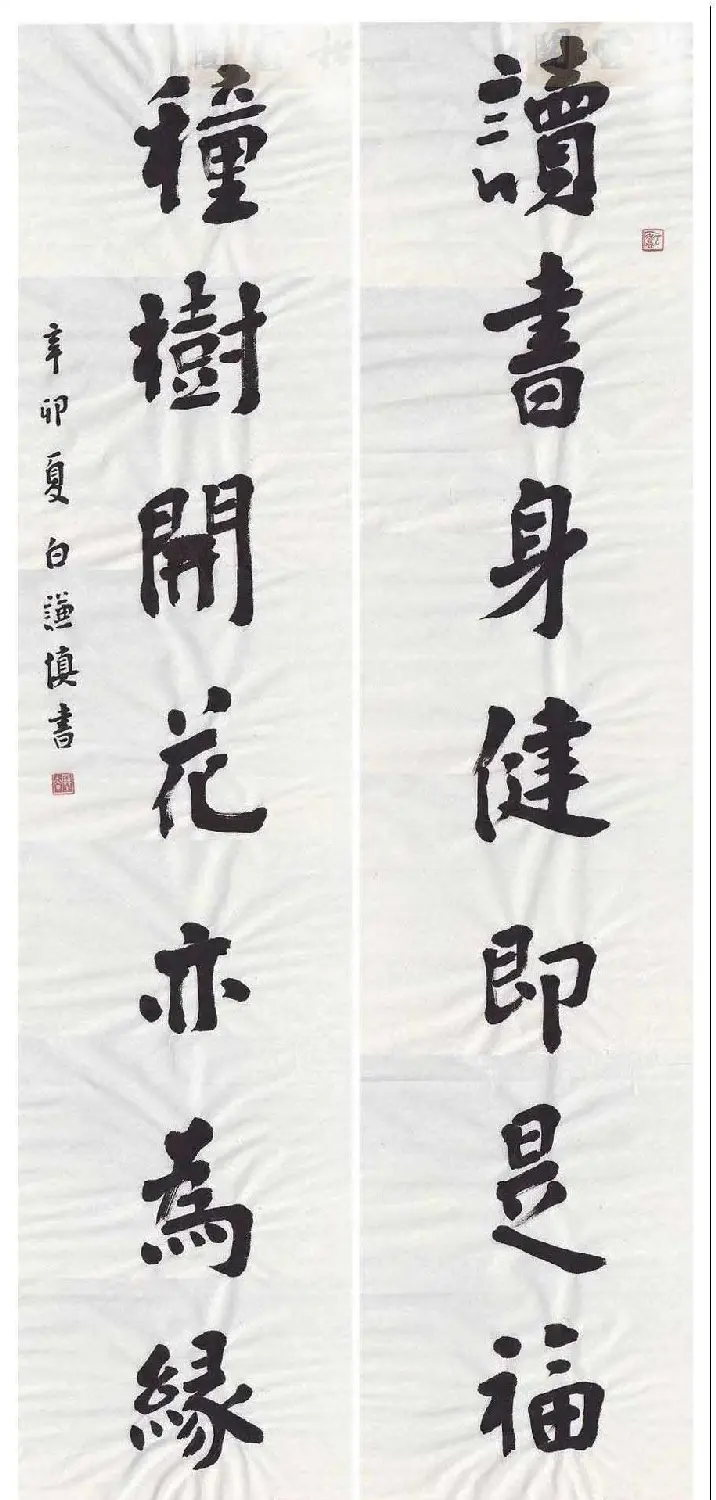 讀書身健即是福
種樹開花亦為緣
辛卯夏白謙慎書